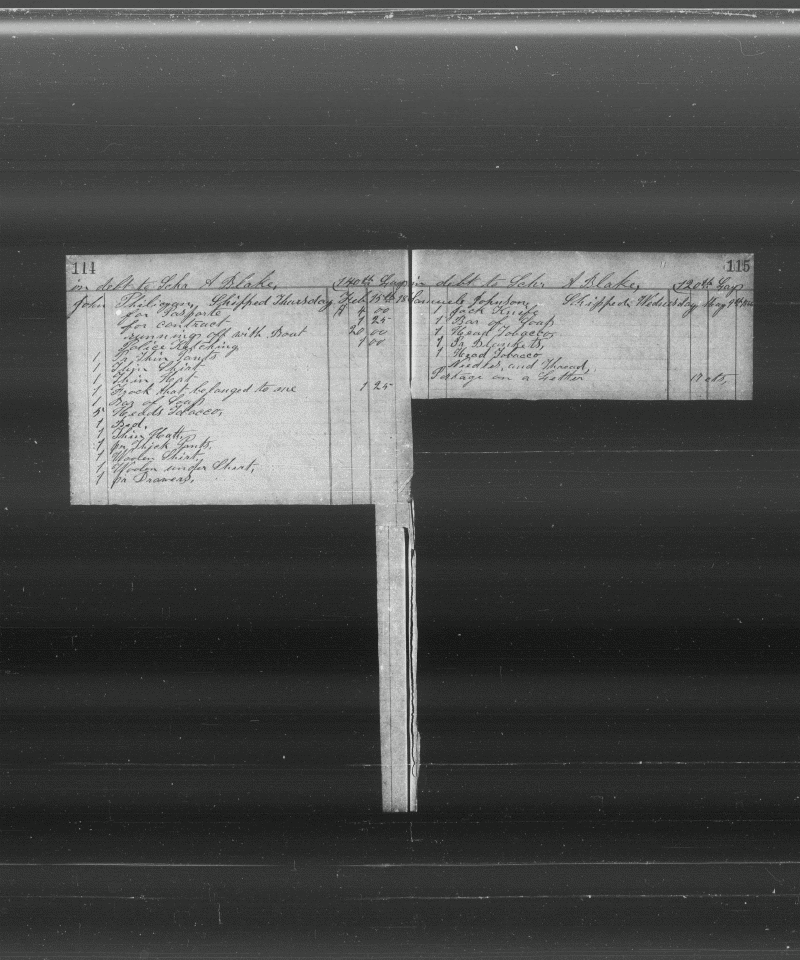 114
in debt to Schr A Blake, 140th Lay
John Shipped Thursday Feb 15th
for Pasporte $ 4 00
for contract 1 25
running off with Boat 20 00
Police Ketching 1 00
1 pr Thin Pants
1 Thin Shirt
1 Thin
1 Frock that belonged to me 1 25
1 Bar of Soap
5 Heads Tobacco,
1 Bed,
1 Thin
1 pr Thick Pants,
1 Woolen Shirt,
1 Woolen under Shirt,
1 pr Drawers,
115
in debt to Schr A Blake, 120th Lay
Samuel Johnson, Shipped Wednesday May
1 Jack Knife
1 Bar of Soap
1 Head Tobacco
1 Pr Blankets,
1 Head Tobacco
Needles, and Thread,
Postage on a Letter cts,